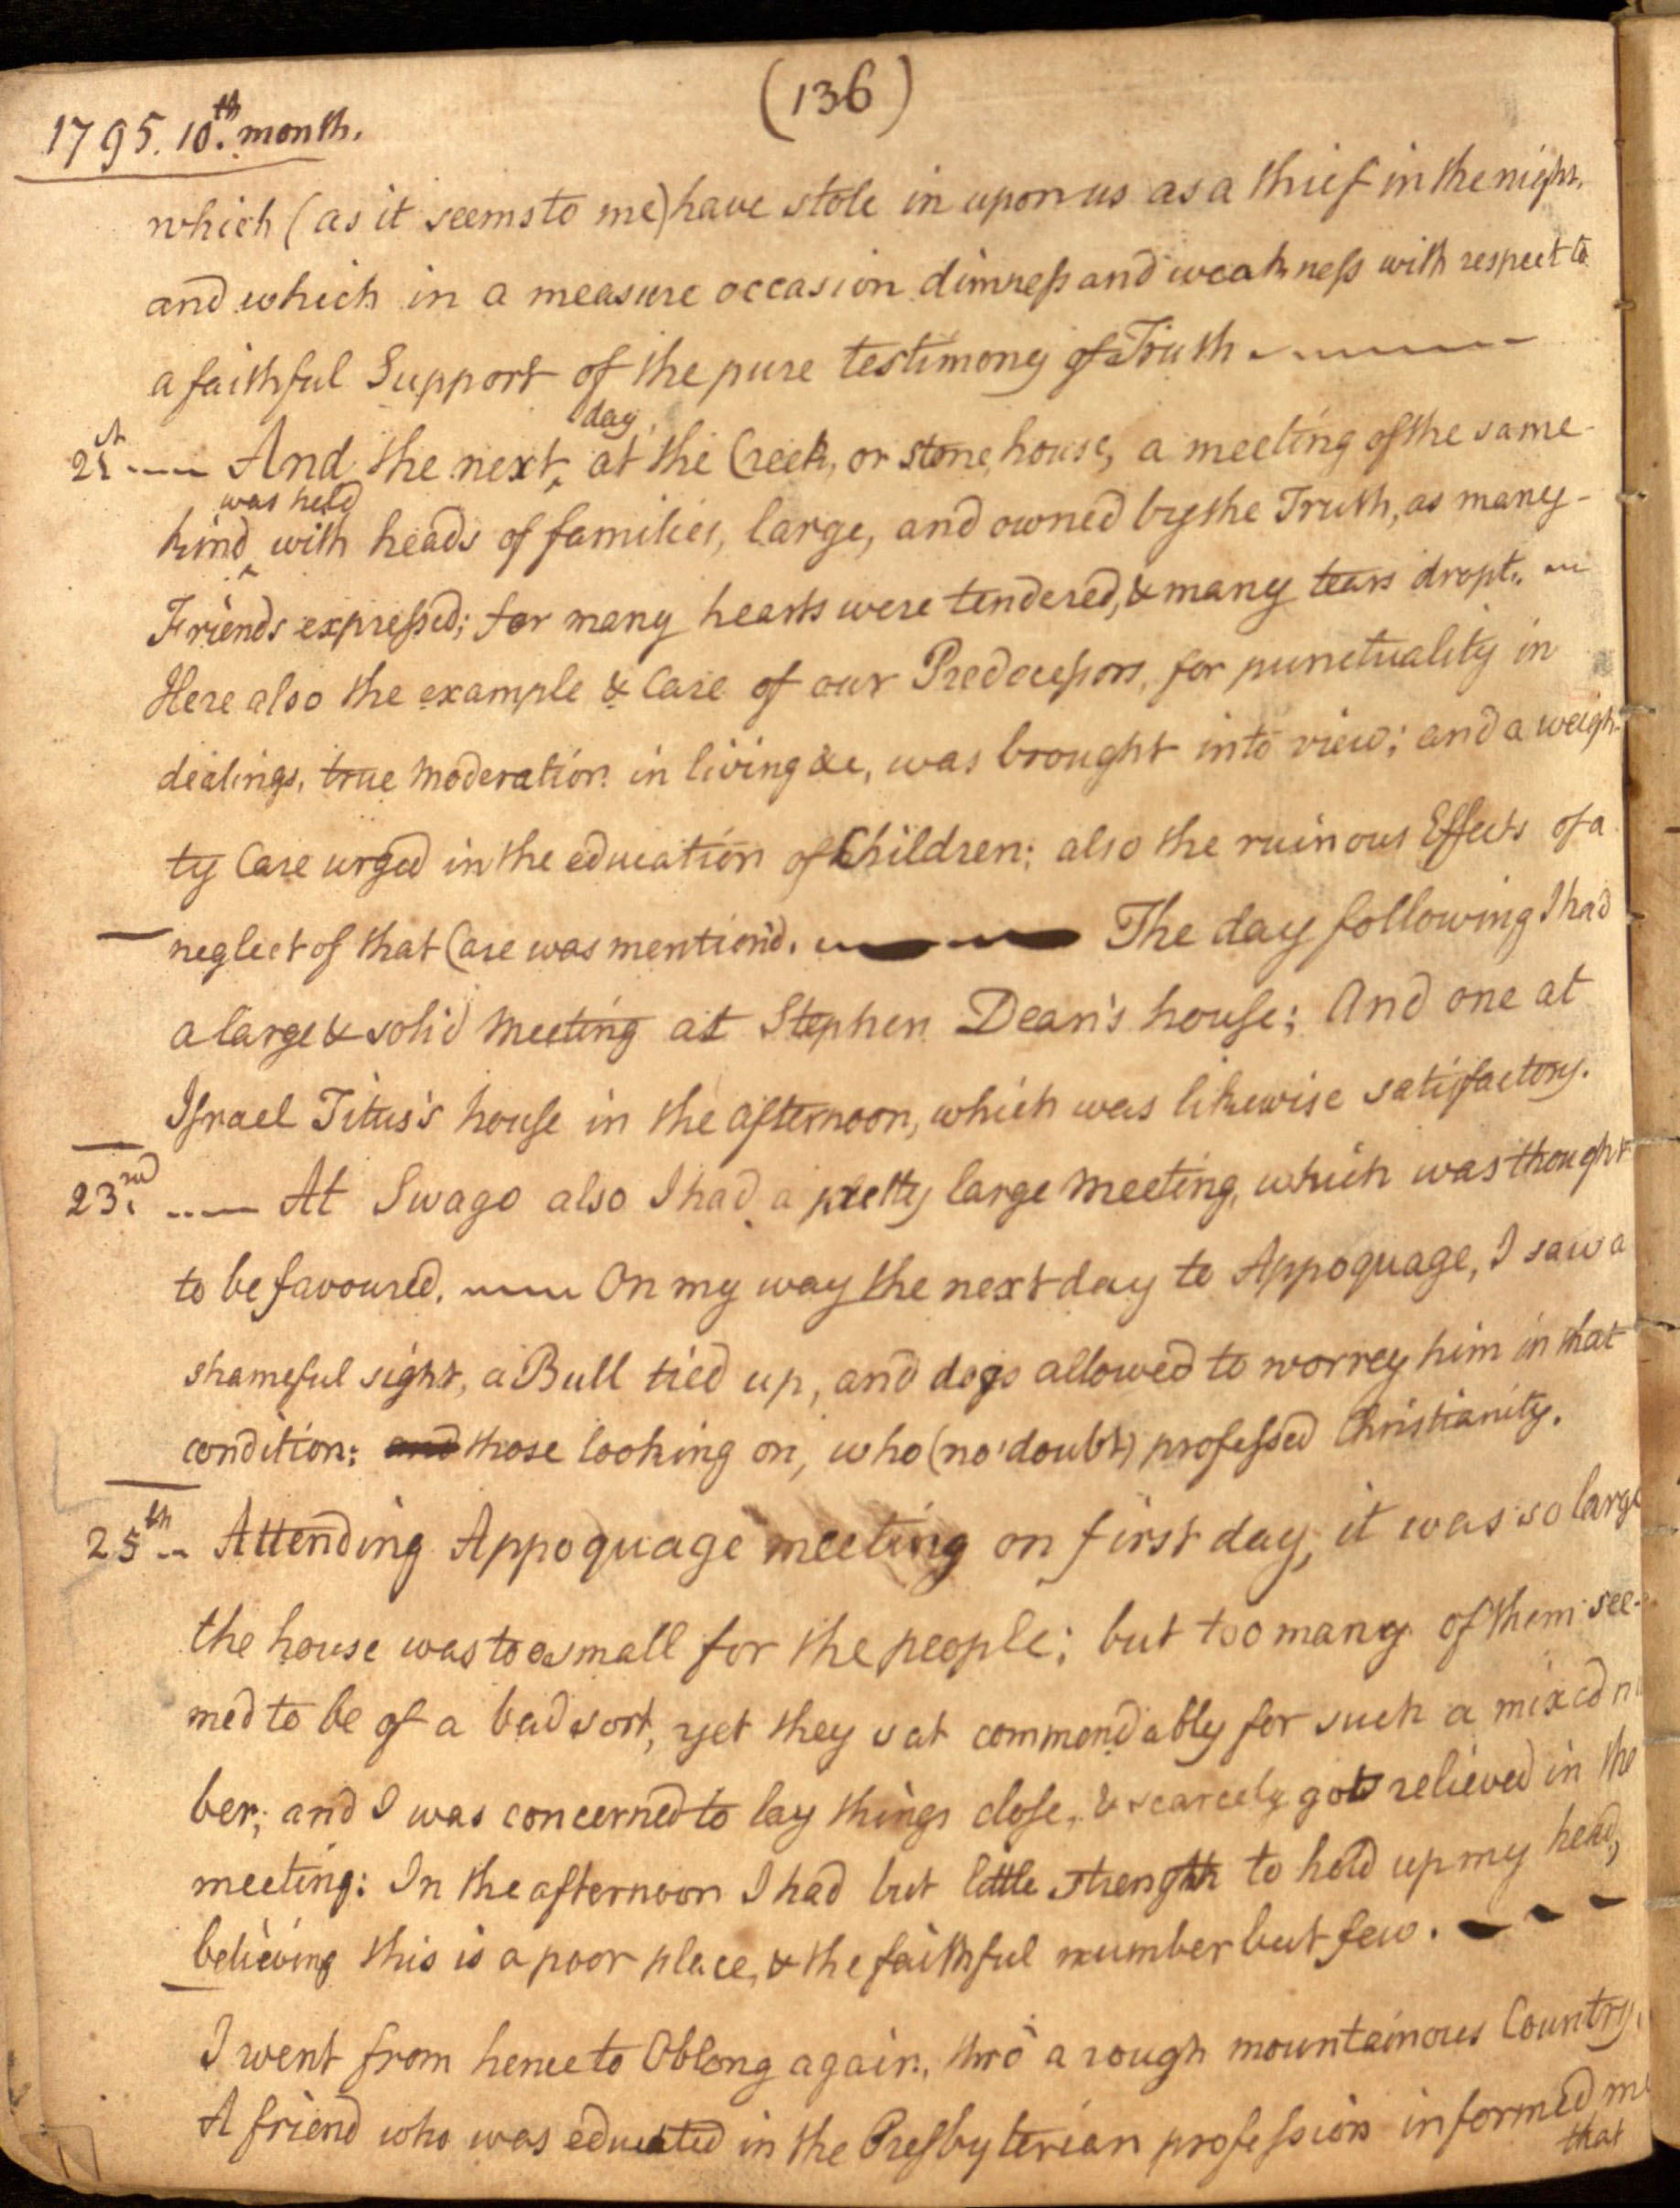 (136)
1795. 10.th month.
which (as it seems to me) have stole in upon us as a thief in the night,
and which in a measure occasion dimness and weakness with respect to
a faithful Support of the pure testimony of Truth
21st And the next day, at the Creek, or stone house, a meeting of the same
kind was held with heads of families, large, and owned by the Truth, as many
Friends expressed; for many hearts were tendered, & many tears dropt.
Here also the example & Care of our Predecessors, for punctuality in
dealings, true moderation in living &c, was brought into view; and a weigh-
ty Care urged in the education of Children; also the ruinous Effects of a
neglect of that Care was mention'd. The day following I had
a large & solid meeting at Stephen Dean's house; And one at
Israel Titus's house in the afternoon, which was likewise satisfactory.
23.rd At Swago also I had a pretty large meeting, which was thought
to be favoured. On my way the next day to Appoquage, I saw a
shameful sight, a Bull tied up, and dogs allowed to worrey him in that
condition: and those looking on, who (no doubt) professed Christianity.
25th Attending Appoquage meeting on first day, it was so large
the house was too small for the people; but too many of them see-
med to be of a bad sort, yet they sat commendably for such a mixed
ber; and I was concerned to lay things close, & scarcely got relieved in the
meeting: In the afternoon I had but little strength to hold up my head,
believing this is a poor place, & the faithful number but few.
I went from hence to Oblong again, thro' a rough mountainous Country.
A friend who was educated in the Presbyterian profession informed me
that